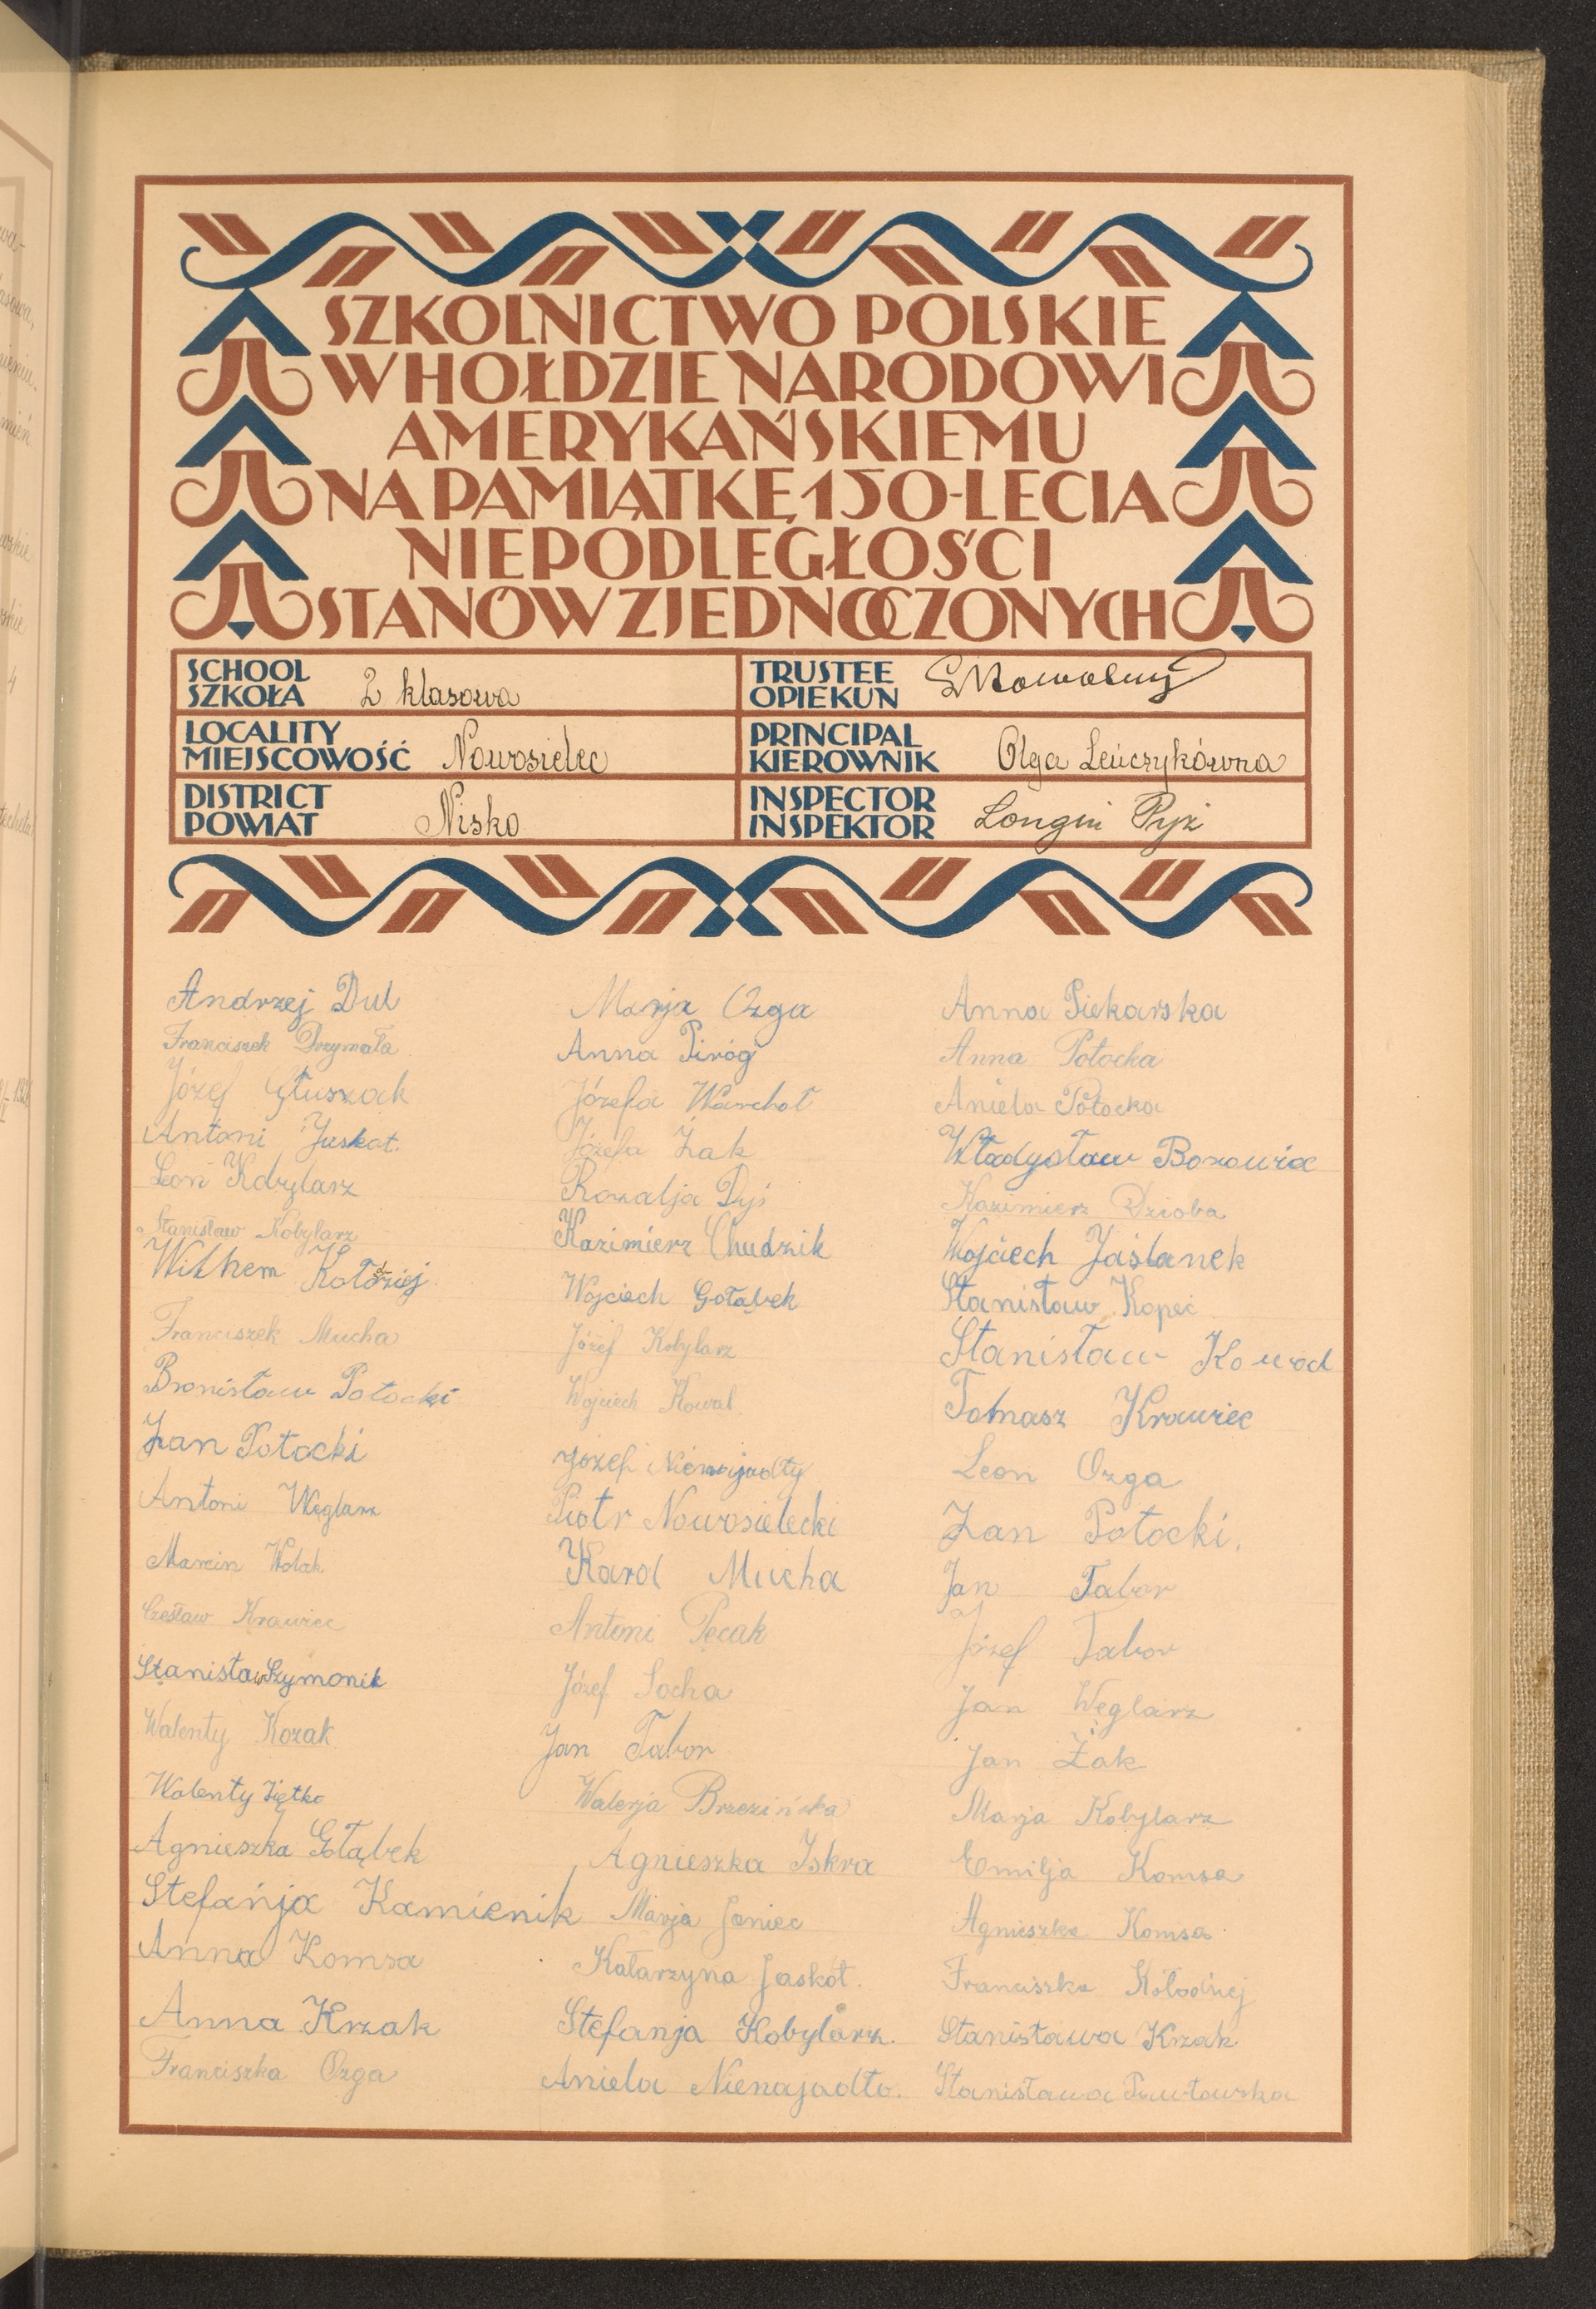 SZKOLNICTWO POLSKIE
W HOŁDZIE NARODOWI
AMERYKAŃSKIEMU
NA PAMIĄTKĘ 150-LECIA
NIEPODLEGŁOŚCI
STANÓW ZJEDNOCZONYCH
SCHOOL
SZKOŁA 2 klasowa
TRUSTEE
OPIEKUN
LOCALITY
MIEJSCOWOŚĆ Nowosielec
PRINCIPAL
KIEROWNIK Olga Leńczykówna
DISTRICT
POWIAT Nisko
INSPECTOR
INSPEKTOR Longin Pyż
Andrzej Dul
Franciszek Drzymała
Józef Głuszak
Antoni Juskot.
Leon Kobylarz
Stanisław Kobylarz
Wilhem Kołodziej
Franciszek Mucha
Bronisław Potocki
Jan Potocki
Antoni Węglarz
Marcin Wolak
Czesław Krawiec
Stanisław Szymonik
Walenty Kozak
Walenty Ziętko
Agnieszka Gołąbek
Stefanja Kamienik
Anna Komsa
Anna Krzak
Franciszka Ozga
Marja Ozga
Anna Piróg
Józefa Warchoł
Józefa Żak
Rozalja Dyś
Kazimierz Chudzik
Wojciech Gołąbek
Józef Kobylarz
Wojciech Kowal
Józef
Piotr Nowosielecki
Karol Mucha
Antoni Pecak
Józef Socha
Jan Tabor
Walerja Brzezińska
Agnieszka Iskra
Marja Joniec
Katarzyna Jaskot.
Stefanja Kobylarz.
Aniela Nienajadło.
Anna Piekarska
Anna Potocka
Aniela Potocka
Władysław Borowia
Kazimierz Dzioba
Wojciech Jaślanek
Stanisław Kopeć
Stanisław Kowal
Tomasz Krawiec
Leon Ozga
Jan Potocki.
Jan Tabor
Józef Tabor
Jan Węglarz
Jan Żak
Marja Kobylarz
Emilja Komsa
Agnieszka Komsa
Franciszka Kołodziej
Stanisława Krzak
Stanisława